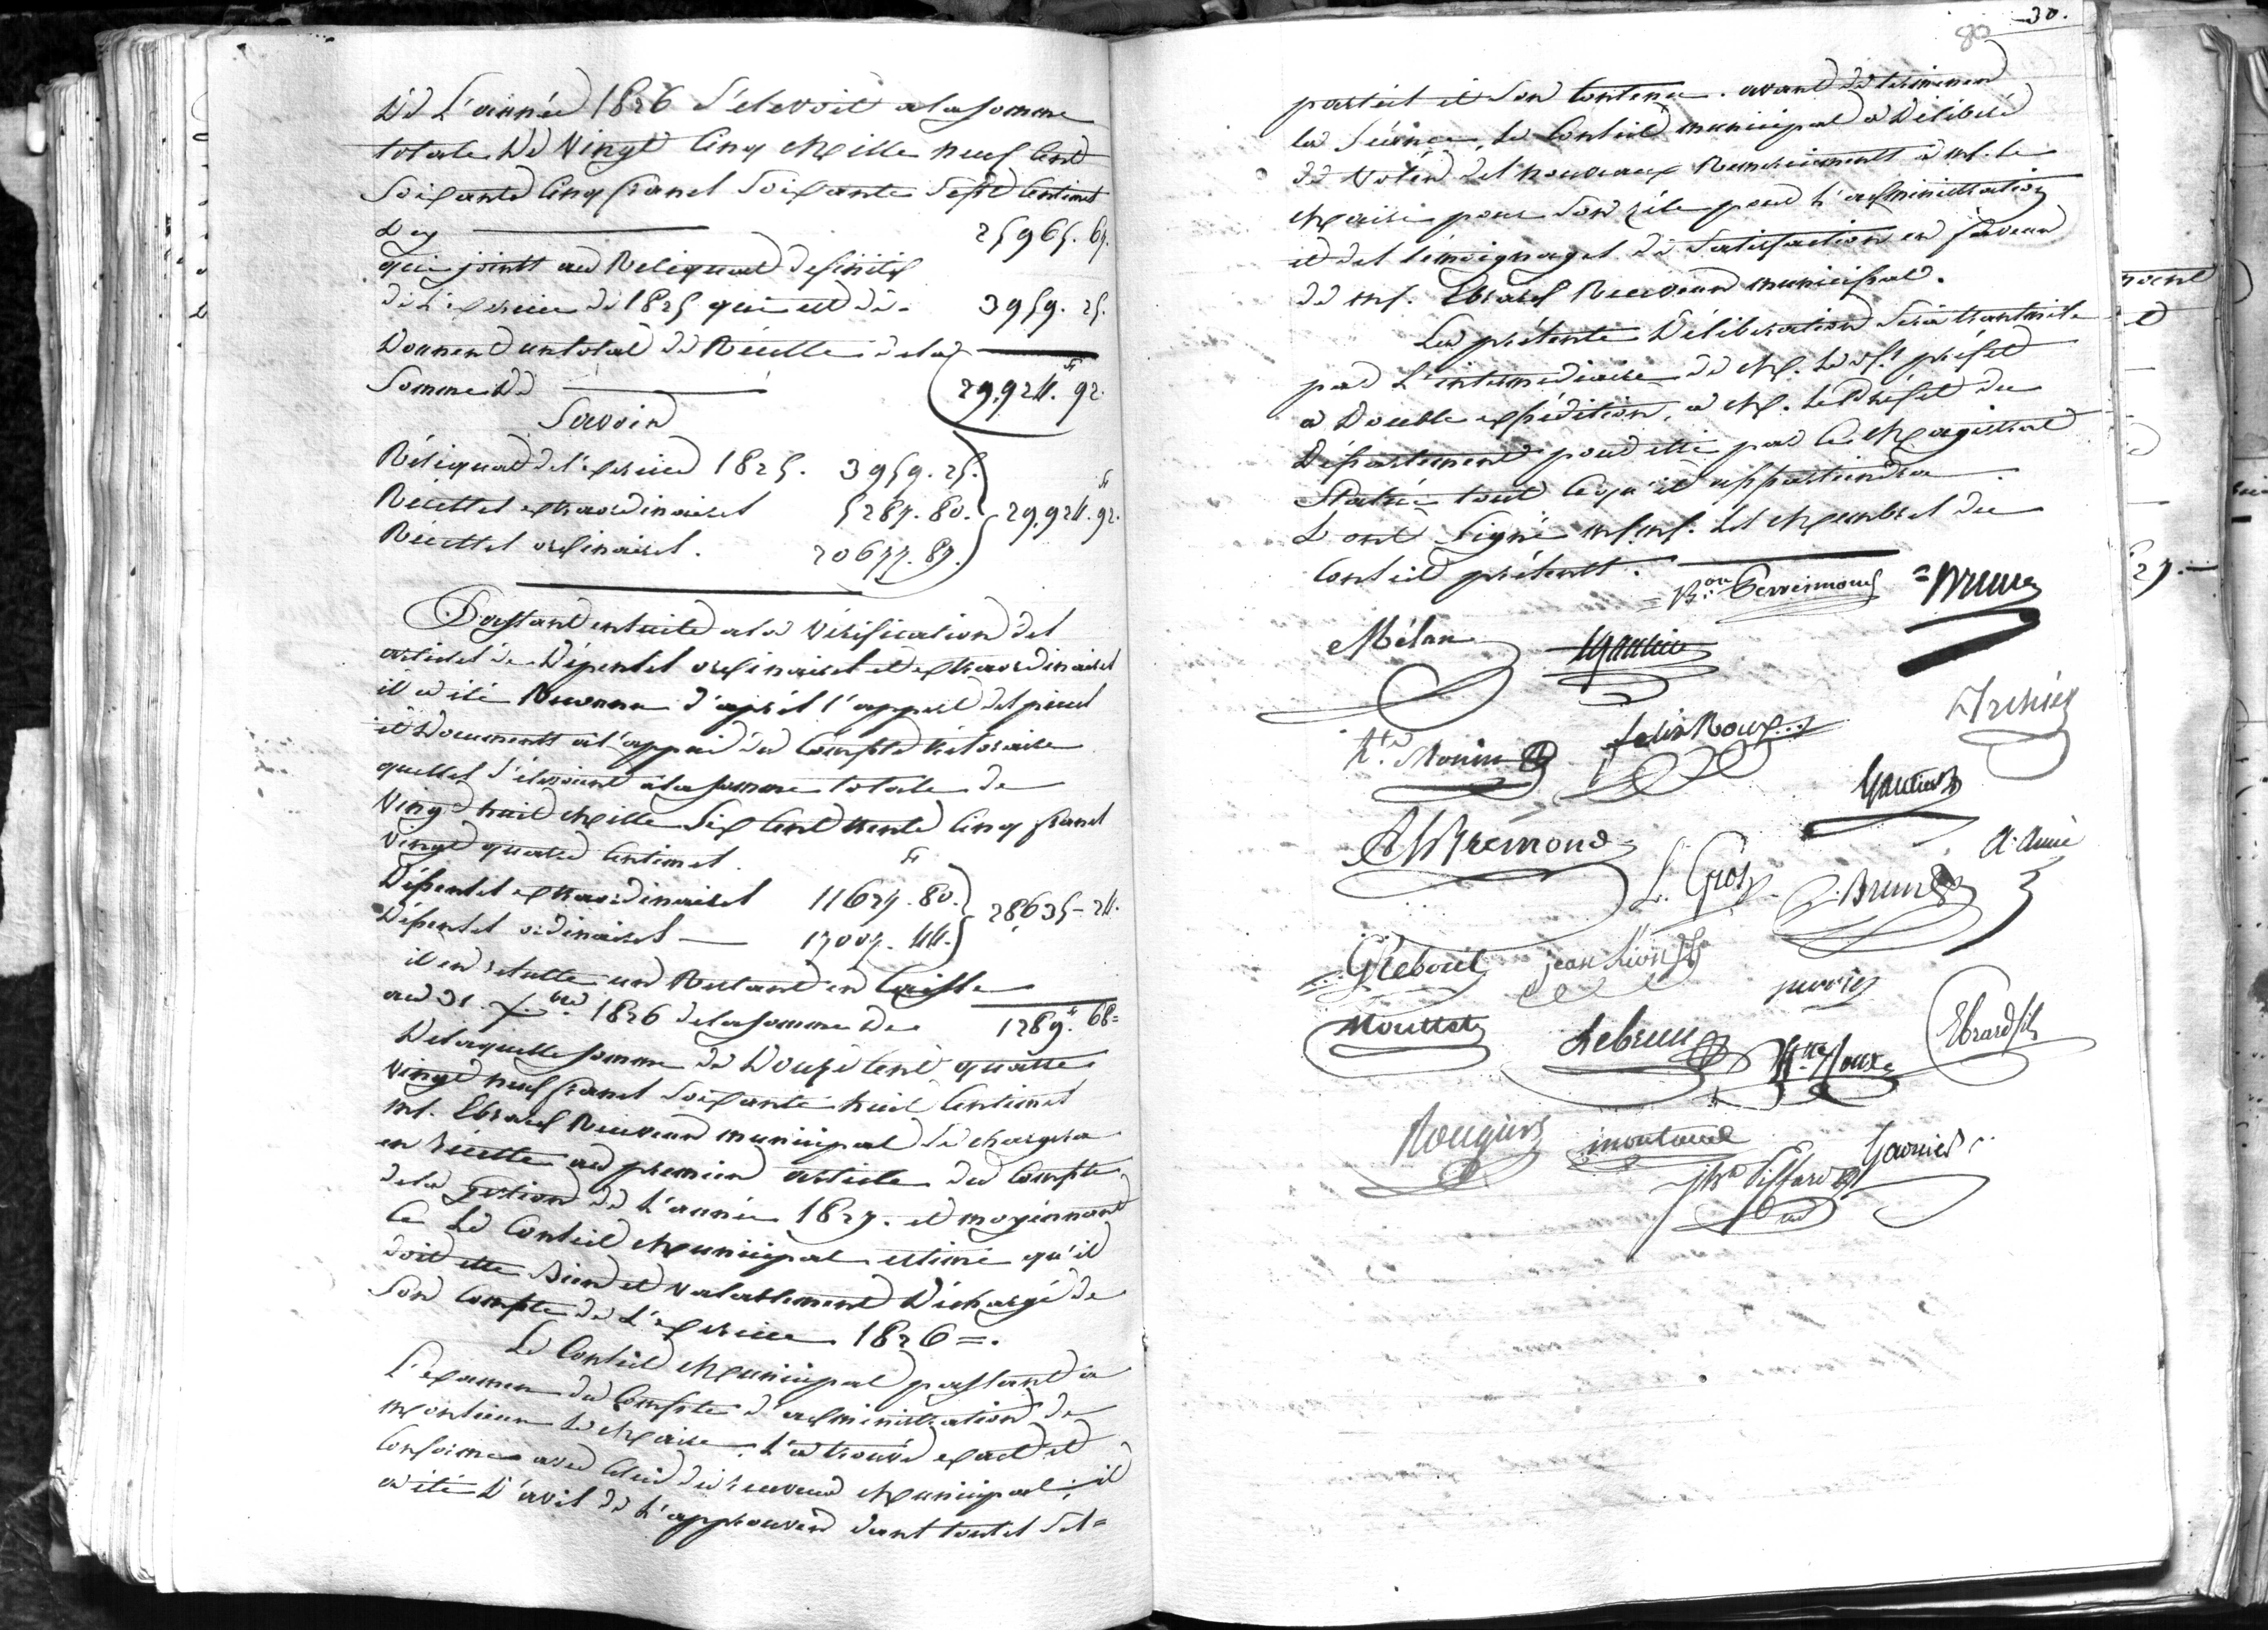 De L'année 1826 S'elevoit a la somme
totale De Vingt Cinq Mille neuf Cent
Soixante Cinq francs Soixante Sept Centimes
Ley 25965. 67.
qui joints au Reliquat definitif
de L'exercice de 1825 qui est de. 3959. 25.
Donnent un total de Récette de la
Somme de 29,924. fr 92.
Savoir
Réliquat de l'exercice 1825. 3959. 25.
Récettes extraordinaires 5287. 80. 29,924. fr 92.
Récettes ordinaires. 20677. 87.
Passant ensuite a la Vérification des
articles de Dépenses ordinaires et extraordinaires
il a été Reconnu d'après l'apport des pieces
et Documents à l'appui du Compte
quelles S'élevoient a la somme totale de
Vingt huit Mille Six Cent trente Cinq francs
Vingt quatre Centimes.
Dépenses extraordinaires 11627. fr 80. 28,635 - 24.
Dépenses ordinaires 17007. 44.
il en résulte un Restant en Caisse
au 31. X.bre 1826 de la somme de 1289. fr 68=
De laquelle somme de Douze Cent quatre
Vingt neuf francs Soixante huit Centimes
Mr. Ebrard Receveur municipal Se chargera
en récette au premier article du Compte
de la gestion de L'année 1827. et moyennant
Ce Le Conseil Municipal estime qu'il
doit etre Bien et valablement Déchargé de
Son Compte de L'exercice 1826 =.
Le Conseil Municipal passant a
L'examen du Compte d'administration de
Monsieur Le Maire. L'a trouvé exact et
Conforme avec Celui du receveur Municipal; il
a été D'avis de L'approuver dans toutes Ses=
80 30.
parties et Son Contenu. avant de terminer
la Séance, Le Conseil municipal a Délibéré
de Voter des nouveaux Remerciements a Mr. Le
Maire pour Son Zéle pour L'administration
et des témoignages de Satisfaction en faveur
de Mr. Ebrard Receveur municipal.
La présente Délibération Sera transmise
par L'intermediaire de Mr. Le Sr. préfet
a Double expédition, a Mr. Le Préfet du
Département pour etre par Ce Magistrat
Statué tout Ce qu'il appartiendra.
L ont Signé MM. Les Membres du
Conseil présents.
Bon Perrimond = Brun
Mélan Gautier
hte. Monin felix Roux
Gautier
Brémond
L. Gros J. Brun
A. Aune
G Reboul jean
Mouttet Lebrun hte. Roux Ebrard fils
Rougiers montaud
Jh. Piffard Garnier